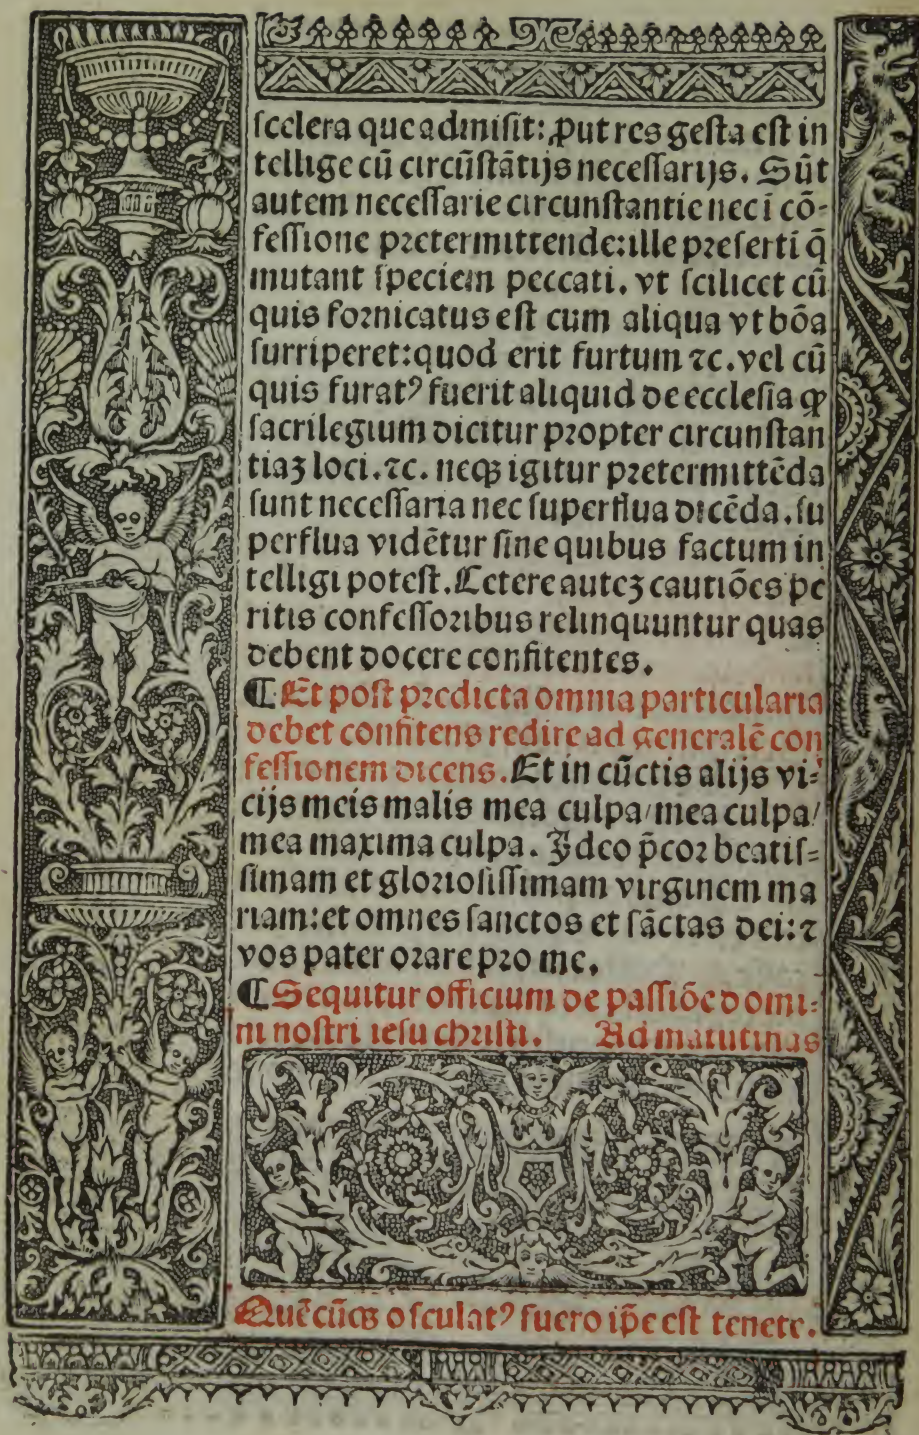 ſcelera que admiſit: ꝓut res geſta eſt in
tellige cū circūſtātijs neceſſarijs. Sūt
autem neceſſarie circunſtantie nec ī cō-
feſſione pꝛetermittende: ille pꝛeſertī q̄
mutant ſpeciem peccati. vt ſcilicet cū
quis foꝛnicatus eſt cum aliqua vt bōa
ſurriperet: quod erit furtum ⁊c. vel cū
quis furatꝰ fuerit aliquid de eccleſia ꝙ
ſacrilegium dicitur pꝛopter circunſtan
tiaꝫ loci. ⁊c. neqꝫ igitur pꝛetermittēda
ſunt neceſſaria nec ſuperflua dicēda. ſu
perflua vidētur ſine quibus factum in
telligi poteſt. Cetere auteꝫ cautiōes pe
ritis confeſſoꝛibus relinquuntur quas
debent docere confitentes.
¶ Et poſt pꝛedicta omnia particularia
debet confitens redire ad generalē con
feſſionem dicens. Et in cūctis alijs vi-
cijs meis malis mea culpa/ mea culpa/
mea maxima culpa. Ideo p̄coꝛ beatiſ-
ſimam et gloꝛioſiſſimam virginem ma
riam: et omnes ſanctos et ſāctas dei: ⁊
vos pater oꝛare pꝛo me.
¶ Sequitur officium de paſſiōe domi-
ni noſtri ieſu chꝛiſti. Ad matutinas
Quēcūqꝫ oſculatꝰ fuero ip̄e eſt tenete.